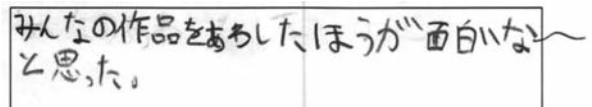 みんなの作品をあわしたほうが面白いな〜
と思った。